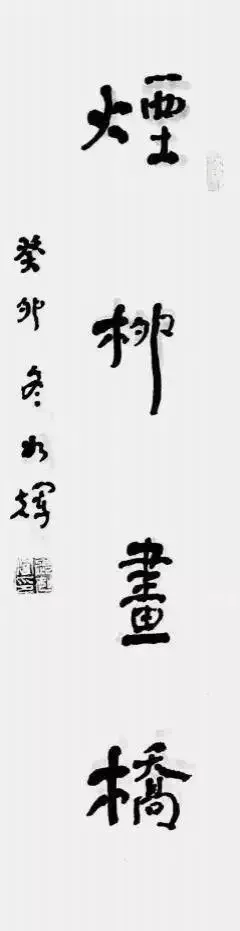 煙柳畫橋
癸卯冬水輝